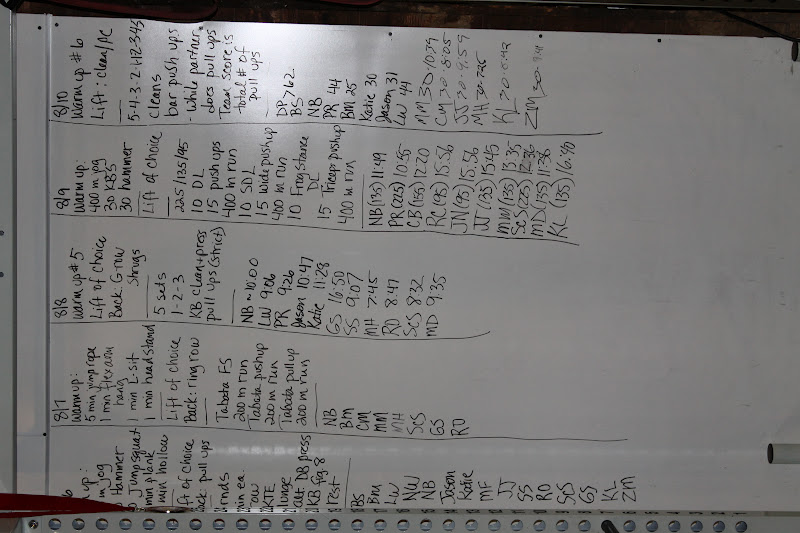 up:
m jog
Hammer
Jump squat
min plank
min hollow
Lift of Choice
Back: pull ups
rnds
min ea.
row
KTE
lunge
alt. DB press
KB fig. 8
rest
BS
Bm
LW
NW
NB
Jason
Katie
MF
JJ
SS
RD
ScS
GS
KL
ZM
8/7
Warm up:
5 min jump rope
1 min flex arm
hang
1 min L-sit
1 min headstand
Lift of Choice
Back: ring row
Tabata FS
200 m run
Tabata pushup
200 m run
Tabata pull up
200 m run
NB
Bm
CM
MM
MH
ScS
GS
RD
8/8
Warm up #5
Lift of Choice
Back: G-row
shrugs
5 sets
1-2-3
KB clean+press
pull ups (strict)
NB ~10:00
LW 9:06
PR 9:26
Jason 10:47
Katie 11:28
GS 16:50
SS 9:07
MH 7:45
RD 8:47
ScS 8:32
MD 9:35
8/9
Warm up:
400 m jog
30 KBS
30 hammer
Lift of Choice
225/135/95
10 DL
15 push ups
400 m run
10 SDL
15 wide pushup
400 m run
10 Frog stance
DL
15 Tricep pushup
400 m run
NB (135) 11:49
PR (225)
CB (155) 12:20
RC (95) 15:56
JN (95) 15:56
JJ (135) 15:45
MM (135) 13:35
ScS (225) 12:36
MD (135) 11:36
KL (135) 16:30
8/10
Warm up #6
Lift: clean/AC
5-4-3-2-1-12345
cleans
bar push ups
- while partner
does pull ups
Team score is
total # of
pull ups
DP 762
BS
NB
PR 44
Bm 25
Katie 30
Jason 31
LW 44
MM 30 10:39
CM 30 8:05
JJ 30 - 9:59
MH 30 7:26
KL 30
ZM 30